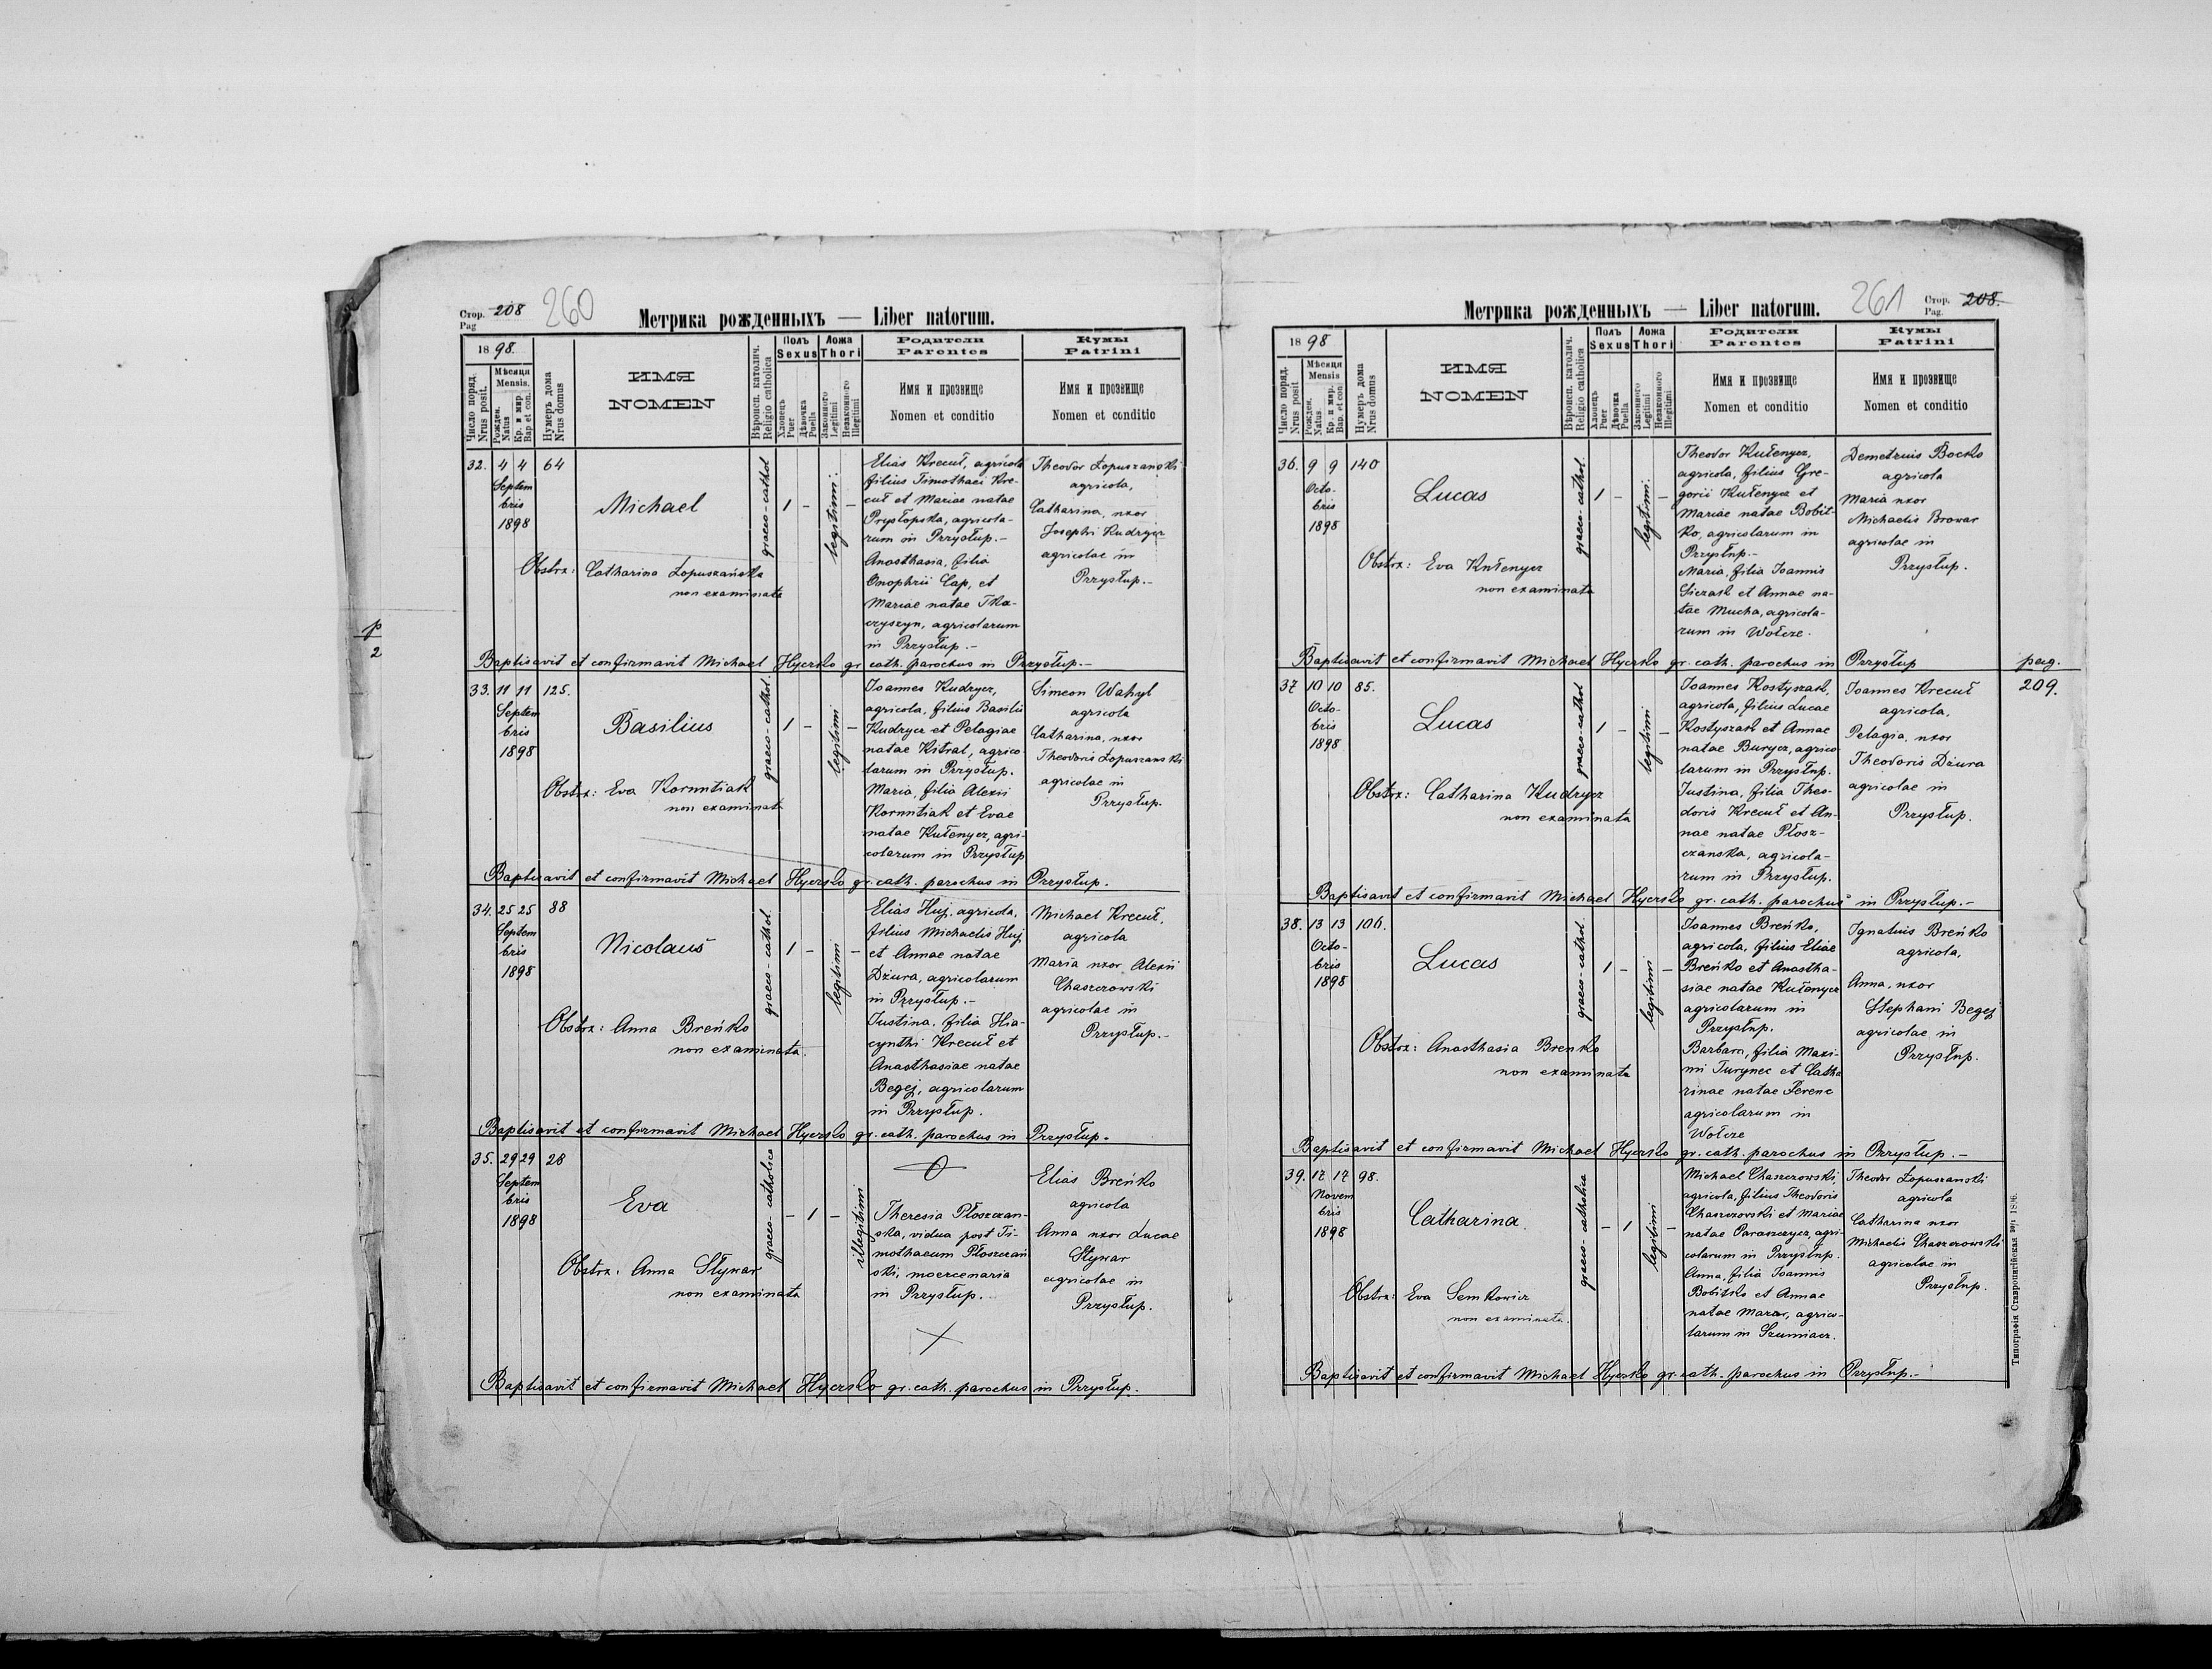 Стор. 208 260
Pag
Метрика рожденныхъ — Liber natorum.
1898.
Число поряд.
Nrus posit.
Мѣсяця
Mensis.
Рожден.
Natus
Кр. и мир.
Bap et con.
Нумеръ дома
Nrus domus
ИМЯ
NOMEN
Вѣроисп. католич.
Religio catholica
Полъ
Sexus
Хлопецъ
Puer
Дѣвочка
Puella
Ложа
Thori
Законного
Legitimi
Незаконного
Illegitimi
Родители
Parentes
Имя и прозвище
Nomen et conditio
Кумы
Patrini
Имя и прозвище
Nomen et conditio
32. 4 4 64
Septem
bris
1898
Michael
graeco-cathol
1 -
legitimi.
-
Obstrx: Catharina Łopuszańska
non examinata
Elias Krecuł, agricola
filius Timothaei Kre-
cuł et Mariae natae
Prysłopska, agricola-
rum in Przysłup.-
Anasthasia, filia
Onophrii Cap, et
Mariae natae Tka-
czyszyn, agricolarum
in Przysłup.-
Theodor Łopuszanski
agricola,
Catharina, uxor
Josephi Kudrycz
agricolae in
Przysłup.-
Baptisavit et confirmavit Michael Hyersko gr. cath. parochus in Przysłup.-
33. 11 11 125.
Septem
bris
1898
Basilius
graeco-cathol.
1 -
legitimi
-
Obstrx: Eva Kornutiak
non examinata
Ioannes Kudrycz,
agricola, filius Basilii
Kudrycz et Pelagiae
natae Kitral, agrico
larum in Przysłup.
Maria, filia Alexii
Kornutiak et Evae
natae Kułenycz, agri-
colarum in Przysłup
Simeon Wahyl
agricola
Catharina, uxor
Theodoris Łopuszanski
agricolae in
Przysłup.
Baptisavit et confirmavit Michael Hyersko gr. cath. parochus in Przysłup.
34. 25 25 88
Septem
bris
1898
Nicolaus
graeco-cathol
1 -
legitimi
-
Obstrx: Anna Breńko
non examinata.
Elias Huj, agricola,
filius Michaelis Huj
et Annae natae
Dziura, agricolarum
in Przysłup.-
Iustina, filia Hia-
cynthi Krecuł et
Anasthasiae natae
Begej, agricolarum
in Przysłup.
Michael Krecuł,
agricola
Maria uxor Alexii
Chaszczowski
agricolae in
Przysłup.-
Baptisavit et confirmavit Michael Hyersko gr. cath. parochus in Przysłup.
35. 29 29 28
Septem
bris
1898
Eva
graeco-catholica
- 1 -
illegitimi
Obstrx: Anna Słynar
non examinata
Theresia Płoszczan-
ska, vidua post Ti-
mothaeum Płoszczań
ski, moercenaria
in Przysłup.
Elias Breńko
agricola
Anna uxor Lucae
Słynar
agricolae in
Przysłup.
Baptisavit et confirmavit Michael Hyersko gr. cath. parochus in Przysłup.
p
2
Метрика рожденныхъ — Liber natorum.
261 Стор. 208.
Pag.
1898
Число поряд.
Nrus posit
Мѣсяця
Mensis
Рожден.
Natus.
Кр. и мир.
Bap. et con.
Нумеръ дома
Nrus domus
ИМЯ
NOMEN
Вѣроисп. католич.
Religio catholica
Полъ
Sexus
Хлопецъ
Puer
Дѣвочка
Puella
Ложа
Thori
Законного
Legitimi
Незаконного
Illegitimi
Родители
Parentes
Имя и прозвище
Nomen et conditio
Кумы
Patrini
Имя и прозвище
Nomen et conditio
36. 9 9 140
Octo-
bris
1898
Lucas
graeco-cathol.
1 -
legitimi.
-
Obstrx: Eva Kułenycz
non examinata
Theodor Kułenycz,
agricola, filius Gre-
gorii Kułenycz et
Mariae natae Bobit-
ko, agricolarum in
Przysłup.-
Maria, filia Ioannis
Siczak et Annae na-
tae Mucha, agricola-
rum in Wołcze.
Demetruis Bocko
agricola
Maria uxor
Michaelis Browar
agricolae in
Przysłup.
Baptisavit et confirmavit Michael Hyersko gr. cath. parochus in Przysłup
pag.
209.
37 10 10 85.
Octo-
bris
1898
Lucas
graeco-cathol
1 -
legitimi
-
Obstrx: Catharina Kudrycz
non examinata
Ioannes Kostyszak,
agricola, filius Lucae
Kostyszak et Annae
natae Burycz, agrico
larum in Przysłup.
Iustina, filia Theo-
doris Krecuł et An-
nae natae Płosz-
czanska, agricola-
rum in Przysłup.
Ioannes Krecuł
agricola,
Pelagia, uxor
Theodoris Dziura
agricolae in
Przysłup.
Baptisavit et confirmavit Michael Hyersko gr. cath. parochus in Przysłup.-
38. 13 13 106.
Octo-
bris
1898
Lucas
graeco-cathol.
1 -
legitimi
-
Obstrx: Anasthasia Brenko
non examinata
Ioannes Breńko,
agricola, filius Eliae
Breńko et Anastha-
siae natae Kułenycz
agricolarum in
Przysłup.
Barbara, filia Maxi-
mi Turynec et Catha
rinae natae Ferenc
agricolarum in
Wołcze
Ignatius Breńko
agricola,
Anna, uxor
Stephani Begej
agricolae in
Przysłup.
Baptisavit et confirmavit Michael Hyersko gr. cath. parochus in Przysłup.-
39. 17 17 98.
Novem
bris
1898
Catharina.
graeco-catholica
- 1
legitimi
-
Obstrx: Eva Semkowicz
non examinata.
Michael Chaszczowski
agricola, filius Theodoris
Chaszczowski et Mariae
natae Paraszczycz, agri-
colarum in Przysłup.
Anna, filia Ioannis
Bobitko et Annae
natae Mazar, agrico-
larum in Szumiacz.
Theodor Łopuszanski
agricola
Catharina uxor
Michaelis Chaszczowski
agricolae in
Przysłup.
Baptisavit et confirmavit Michael Hyersko gr. cath. parochus in Przysłup.-
Типографія Ставропигійская